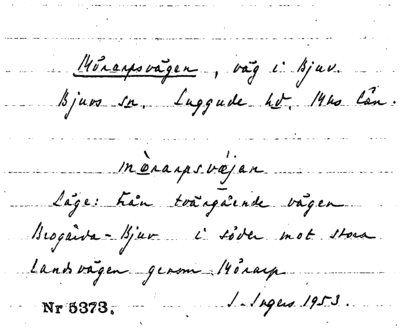 Mörarpsvägen, väg i Bjuv.
Bjuvs sn. Luggude hd. Mhs län.
mòrarpsvæjan
Läge: från tvärgående vägen
Brogårda - Bjuv i söder mot stora
landsvägen genom Mörarp
Nr 5373. I. Ingers 1953.